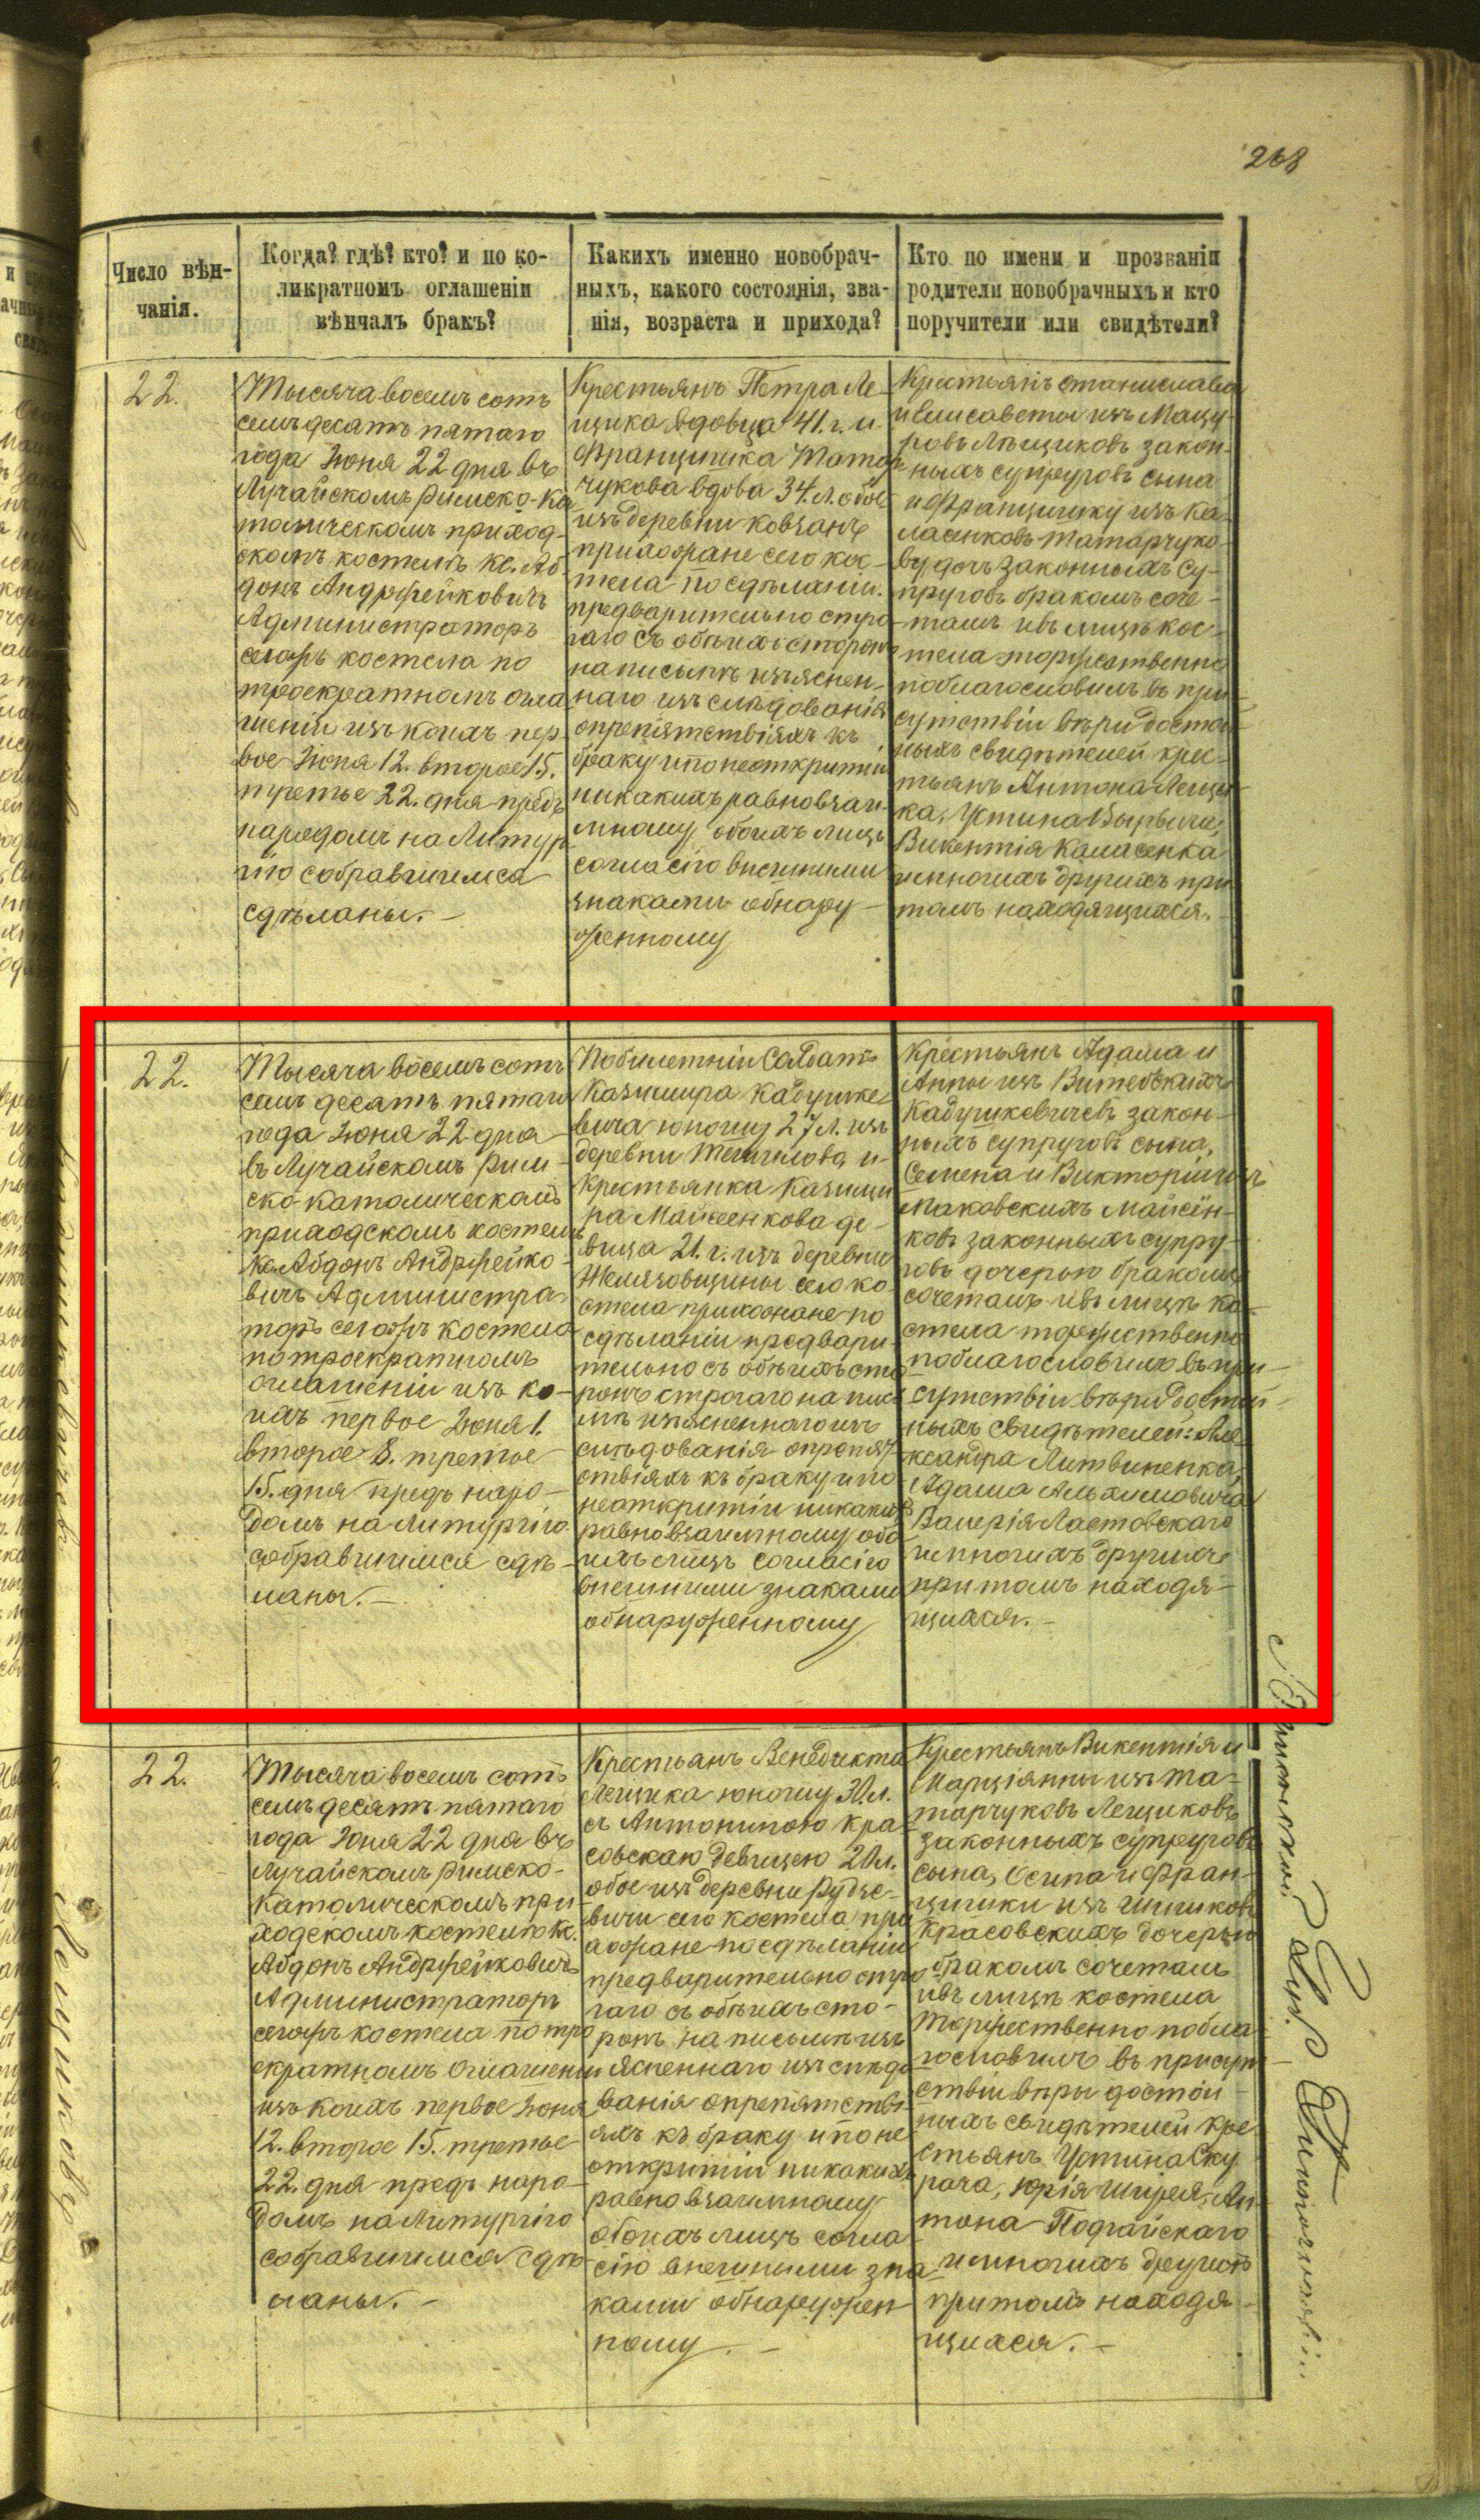 268
Число вѣн-
чанія.
Когда? гдѣ? кто? и по ко-
ликратномъ оглашеніи
вѣнчалъ бракъ?
Какихъ именно новобрач-
ныхъ, какого состоянія, зва-
нія, возраста и прихода?
Кто по имени и прозванію
родители новобрачныхъ и кто
поручители или свидѣтели?
22.
Тысяча восемь сотъ
семъдесятъ пятаго
года Іюня 22 дня въ
Лучайскомъ Римско-Ка
толическомъ приход-
скомъ костелѣ Кс. Аб-
донъ Андржейковичъ
Администраторъ
сегожъ костела по
троекратномъ огла
шеніи изъ коихъ пер-
вое Іюня 12. второе 15.
третье 22. дня предъ
народомъ на Литур
гію собравшимся
сдѣланы.-
Крестьянъ Петра Ле-
щика вдовца 41. г. и
Францишка Татар
чукова вдова 34. л. обое
изъ деревни Ковзанъ
прихожане сего кос-
тела по сдѣланіи
предварительно стро-
гаго съ обѣихъ сторонъ
на письмѣ изъяснен-
наго изслѣдованія
опрепятствіяхъ къ
браку и по неоткритіи
никакихъ равно взаи-
мному обоихъ лицъ
согласію внешними
знаками обнару-
женному
Крестьянъ Станислава
и Елисаветы изъ Мацу-
ровъ Лѣщиковъ закон-
ныхъ супруговъ сына
и Францишку изъ Ка-
ласенковъ Татарчуко-
ву дочь законныхъ су-
пруговъ бракомъ соче-
талъ ивъ лицѣ кос-
тела торжественно
поблагословилъ въ при-
сутствіи вѣри достой-
ныхъ свидѣтелей крес-
тьянъ Антона Лещи-
ка, Устина Вырвича,
Викентія Каласенка
имногихъ другихъ при
томъ находящихся.
22.
Тысяча восемь сотъ
семь десятъ пятаго
года Іюня 22 дня
въ Лучайскомъ Рим-
ско-католическомъ
приходскомъ костелѣ
Кс. Абдонъ Андржейко-
вичъ Администра-
торъ сегожъ костела
по троекратномъ
оглашеніи изъ ко-
ихъ первое Іюня 1.
второе 8. третье
15. дня предъ наро-
домъ на литургію
собравшимся сдѣ-
ланы.-
Побилетній Солдатъ
Казимира Кадушке
вича юношу 27 л. изъ
деревни Тешилова и
Крестьянка Казими
ра Майсенкова де-
вица 21. г. изъ деревни
Желязовщины сего ко-
стела прихожане по
сдѣланіи предвари-
тельно съ обѣихъ сто-
ронъ строгаго на пись-
мѣ изъясненнаго из-
слѣдованія опрепят-
ствіяхъ къ браку и по
неоткритіи никакихъ
равно взаимному обо-
ихъ лицъ согласію
внешними знаками
обнаруженному
Крестьянъ Адама и
Анны изъ Витебскихъ
Кадушкевичевъ закон-
ныхъ супруговъ сына,
Семена и Викторіи изъ
Маковскихъ Майсен-
ковъ законныхъ супру-
говъ дочерью бракомъ
сочеталъ ивъ лицѣ ко-
стела торжественно
поблагословилъ въ при-
сутствіи вѣри достой-
ныхъ свидѣтелей: Але-
ксандра Литвиненка,
Адама Альхимовича
Валерія Ластовскаго
имногихъ другихъ
притомъ находя-
щихся.-
22.
Тысяча восемь сотъ
семъдесятъ пятаго
года Іюня 22 дня въ
Лучайскомъ Римско-
Католическомъ при-
ходскомъ костелѣ Кс.
Абдонъ Андржейковичъ
Администраторъ
сегожъ костела по тро
екратномъ оглашеніи
изъ коихъ первое Іюня
12. второе 15. третье
22. дня предъ наро-
домъ на Литургію
собравшимся сдѣ-
ланы.-
Крестьянъ Венедикта
Лещика юношу 30 л.
съ Антониною Кра-
совскаю девицею 20 л.
обое изъ деревни Рудзе-
вичи сего костела при
хожане по сдѣланіи
предварительно стро
гаго съ обѣихъ сто-
ронъ на письмѣ изъ
ясненнаго изслѣдо
ванія опрепятстві
яхъ къ браку и по не
откритіи никакихъ
равно взаимному
обоихъ лицъ согла
сію внешними зна
ками обнаружен
ному.-
Крестьянъ Викентія и
Марціянны изъ Та-
тарчуковъ Лещиковъ
законныхъ супруговъ
сына, Осипа и Фран-
цишки изъ Шишковъ
Красовскихъ дочерью
бракомъ сочеталъ
ивъ лицѣ костела
торжественно побла-
гословилъ въ присут-
ствіи вѣры достой-
ныхъ свидѣтелей кре-
стьянъ Устина Ску
рата, Юрія Ширея, Ан-
тона Подгайскаго
имногихъ другихъ
притомъ находя-
щихся.-